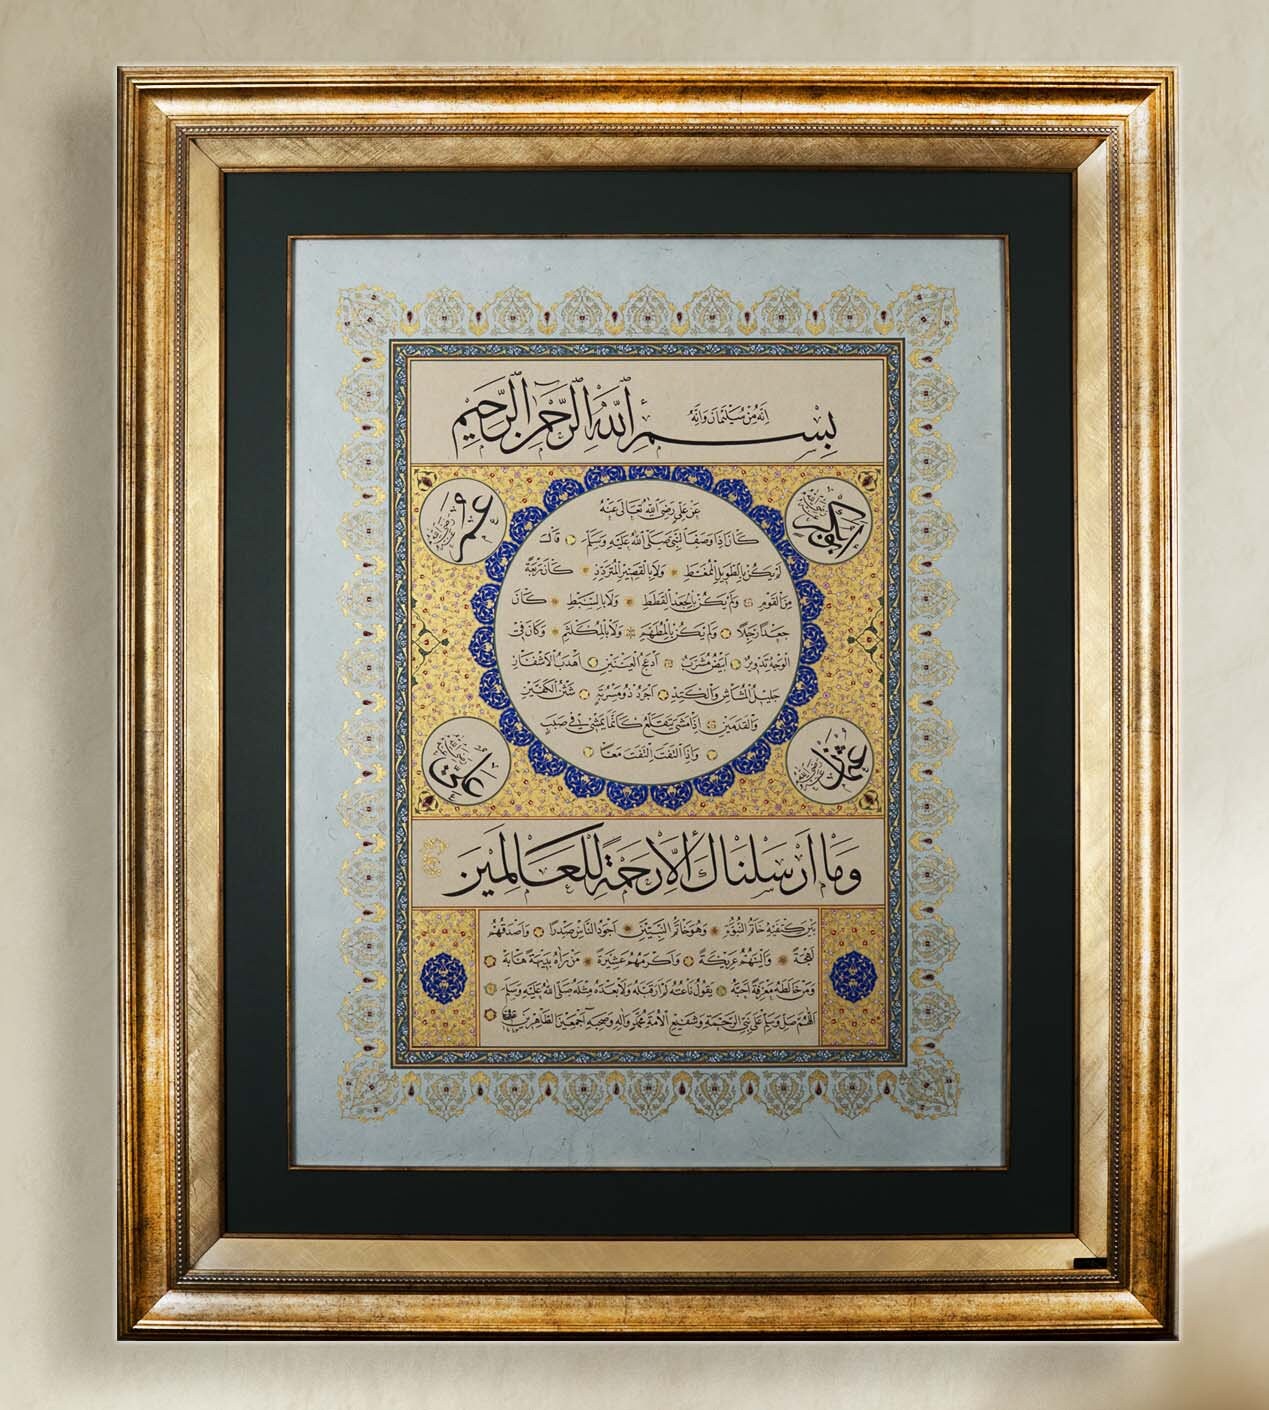 بِسْمِ اللّٰهِ الرَّحْمٰنِ الرَّحِيمِ
اِنَّهُ مِنْ سُلَيْمَانَ وَاِنَّهُ
ابو بكر رضي الله عنه
عمر رضي الله عنه
عَنْ عَلِيٍّ رَضِيَ اللّٰهُ تَعَالٰى عَنْهُ
كَانَ اِذَا وَصَفَ النَّبِيَّ صَلَّى اللّٰهُ عَلَيْهِ وَسَلَّمَ قَالَ
لَمْ يَكُنْ بِالطَّوِيلِ الْمُمَغَّطِ وَلَا بِالْقَصِيرِ الْمُتَرَدِّدِ كَانَ رَبْعَةً
مِنَ الْقَوْمِ وَلَمْ يَكُنْ بِالْجَعْدِ الْقَطَطِ وَلَا بِالسَّبِطِ كَانَ
جَعْدًا رَجِلًا وَلَمْ يَكُنْ بِالْمُطَهَّمِ وَلَا بِالْمُكَلْثَمِ وَكَانَ فِي
الْوَجْهِ تَدْوِيرٌ اَبْيَضُ مُشْرَبٌ اَدْعَجُ الْعَيْنَيْنِ اَهْدَبُ الْاَشْفَارِ
جَلِيلُ الْمُشَاشِ وَالْكَتَدِ اَجْرَدُ ذُو مَسْرُبَةٍ شَثْنُ الْكَفَّيْنِ
وَالْقَدَمَيْنِ اِذَا مَشٰى يَتَقَلَّعُ كَاَنَّمَا يَمْشِي فِي صَبَبٍ
وَاِذَا الْتَفَتَ الْتَفَتَ مَعًا
عثمان رضي الله عنه
علي رضي الله عنه
وَمَا اَرْسَلْنَاكَ اِلَّا رَحْمَةً لِلْعَالَمِينَ
بَيْنَ كَتِفَيْهِ خَاتَمُ النُّبُوَّةِ وَهُوَ خَاتَمُ النَّبِيِّينَ اَجْوَدُ النَّاسِ صَدْرًا وَاَصْدَقُهُمْ
لَهْجَةً وَاَلْيَنُهُمْ عَرِيكَةً وَاَكْرَمُهُمْ عَشِيرَةً مَنْ رَاٰهُ بَدِيهَةً هَابَهُ
وَمَنْ خَالَطَهُ مَعْرِفَةً اَحَبَّهُ يَقُولُ نَاعِتُهُ لَمْ اَرَ قَبْلَهُ وَلَا بَعْدَهُ مِثْلَهُ صَلَّى اللّٰهُ عَلَيْهِ وَسَلَّمَ
اَللّٰهُمَّ صَلِّ وَسَلِّمْ عَلٰى نَبِيِّ الرَّحْمَةِ وَشَفِيعِ الْاُمَّةِ مُحَمَّدٍ وَاٰلِهِ وَصَحْبِهِ اَجْمَعِينَ الطَّاهِرِينَ